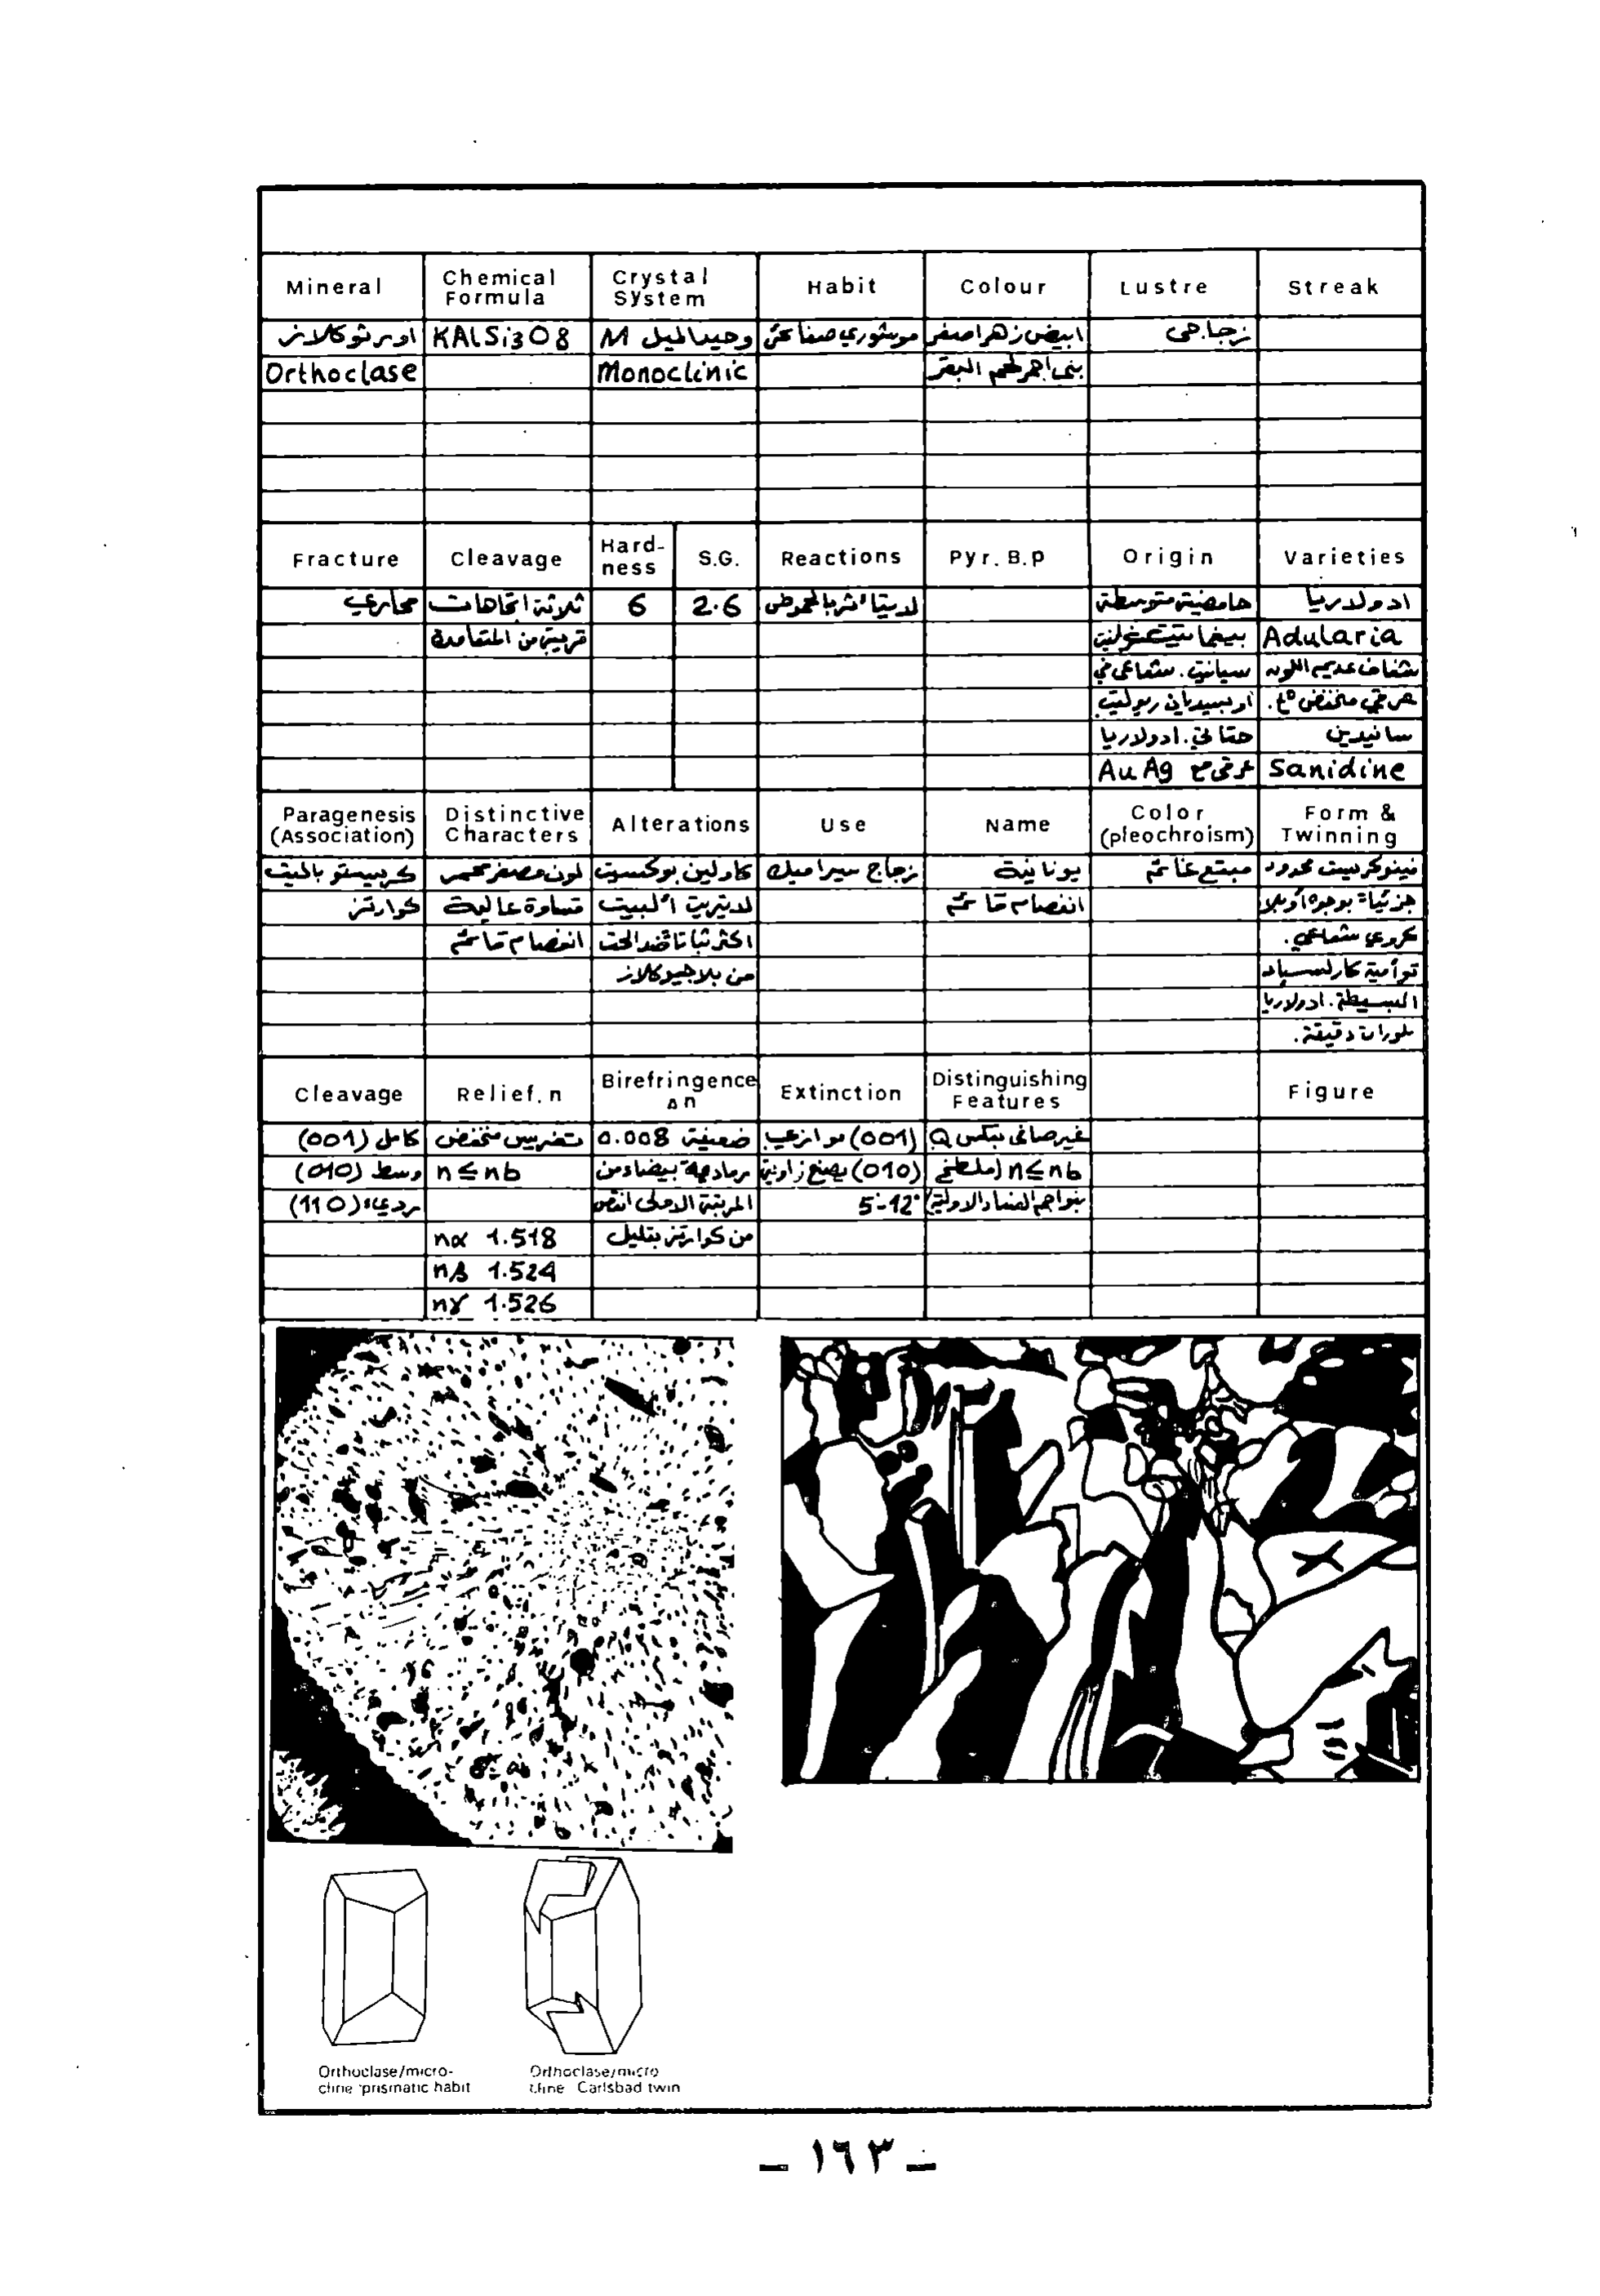 Mineral Chemical Formula Crystal System Habit Colour Lustre Streak
اورثوكلاز KALSi3O8 وحيد الميل M موشوري صفائحي ابيض زهر اصفر زجاجي
Orthoclase Monoclinic بني احمر لحم البقر
Fracture Cleavage Hard-ness S.G. Reactions Pyr. B.p Origin Varieties
محاري ثلاثة اتجاهات 6 2.6 لا يتأثر بالحموض حامضية متوسطة ادولدريا
قريبة من المتعامدة Adularia
سيانيت. شعاعي في شفاف عديم اللون
اوبسيديان ريوليت حرقي منخفض
حقاني. ادولاريا سانيدين
عرقي مع Au Ag Sanidine
Paragenesis (Association) Distinctive Characters Alterations Use Name Color (pleochroism) Form & Twinning
كريبيستو باليت لون مصفر محمر كاولين بوكسيت زجاج سيراميك يونانية مبتع غائم محدود
كوارتز قساوة عالية لاتيريت انفصام قائم جزئياً بوجوه أو بلا
انفصام قائم اكثر ثباتا ضد الحت كروي شعاعي.
من بلاجيوكلاز توأمية كارلسباد
البسيطة. ادولاريا
بلورات دقيقة.
Cleavage Relief. n Birefringence Δn Extinction Distinguishing Features Figure
كامل (001) تضريس منخفض ضعيفة 0.008 (001) موازي غير صافي بعكس Q
وسط (010) n≤nb رمادية بيضاء من (010) يصنع زاوية n≤nb
رديء (110) المرتبة الاولى انقص 5-12°
nα 1.518 من كوارتز بقليل
nβ 1.524
nγ 1.526
Orthoclase/micro-
cline prismatic habit
Orthoclase/micro
cline Carlsbad twin
- ١٦٣ -